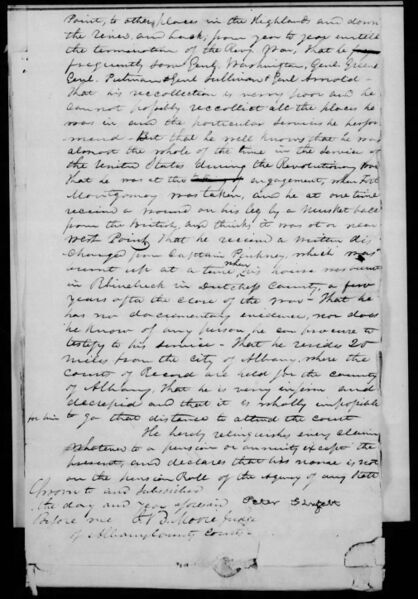 Point, to other places in the Highlands and down
the River and back, from year to year untill
the termination of the Rev. War, that he
frequently saw Genl. Washington, Genl. Greene
Genl. Putnam & Genl Sullivan & Genl Arnold –
That his recollection is very poor and he
cannot possibly reccollect all the places he
was in and the particular services he perfor
med – But that he well knows that he was
almost the whole of the time in the service of
the United States during the Revolutionary War
that he was at the engagement, when Fort
Montgomery was taken, and he at one time
received a wound on his leg by a Musket ball
from the British, and thinks it was at or near
West Point, That he received a written dis
charge from Captain Pinkney, which was
burnt up at a time when his house was burnt
in Rhinebeck in Dutchess County, a few
years after the close of the war – That he
has no documentary evidence, nor does
he know of any person, he can procure to
testify to his service – That he resides 20
miles from the City of Albany, where the
Court of Record are held for the County
of Albany, that he is very infirm and
decrepid and that it is wholly impossible
for him to go that distance to attend the court
He hereby relinquishes every claim
whatever to a pension or annuity except the
present, and declares that his name is not
on the Pension Roll of the Agency of any State
Sworn to and Subscribed
the day and year aforesaid Peter
before me Moore Judge
of Albany County Courts